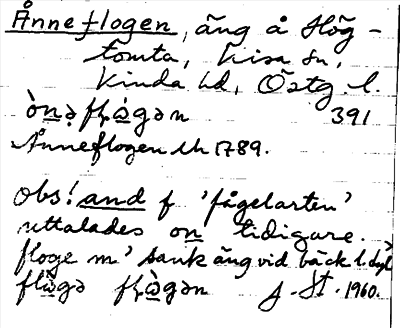 Ånneflogen, äng å Hög-
tomta, Kisa sn,
Kinda hd, Östg. l.
ò̀nəfɭɷ̀gən 391
Ånneflogen Lh 1789.
Obs! and f 'fågelarten'
uttalades on tidigare.
floge m' sank äng vid bäck l. dyl
J. St. 1960.